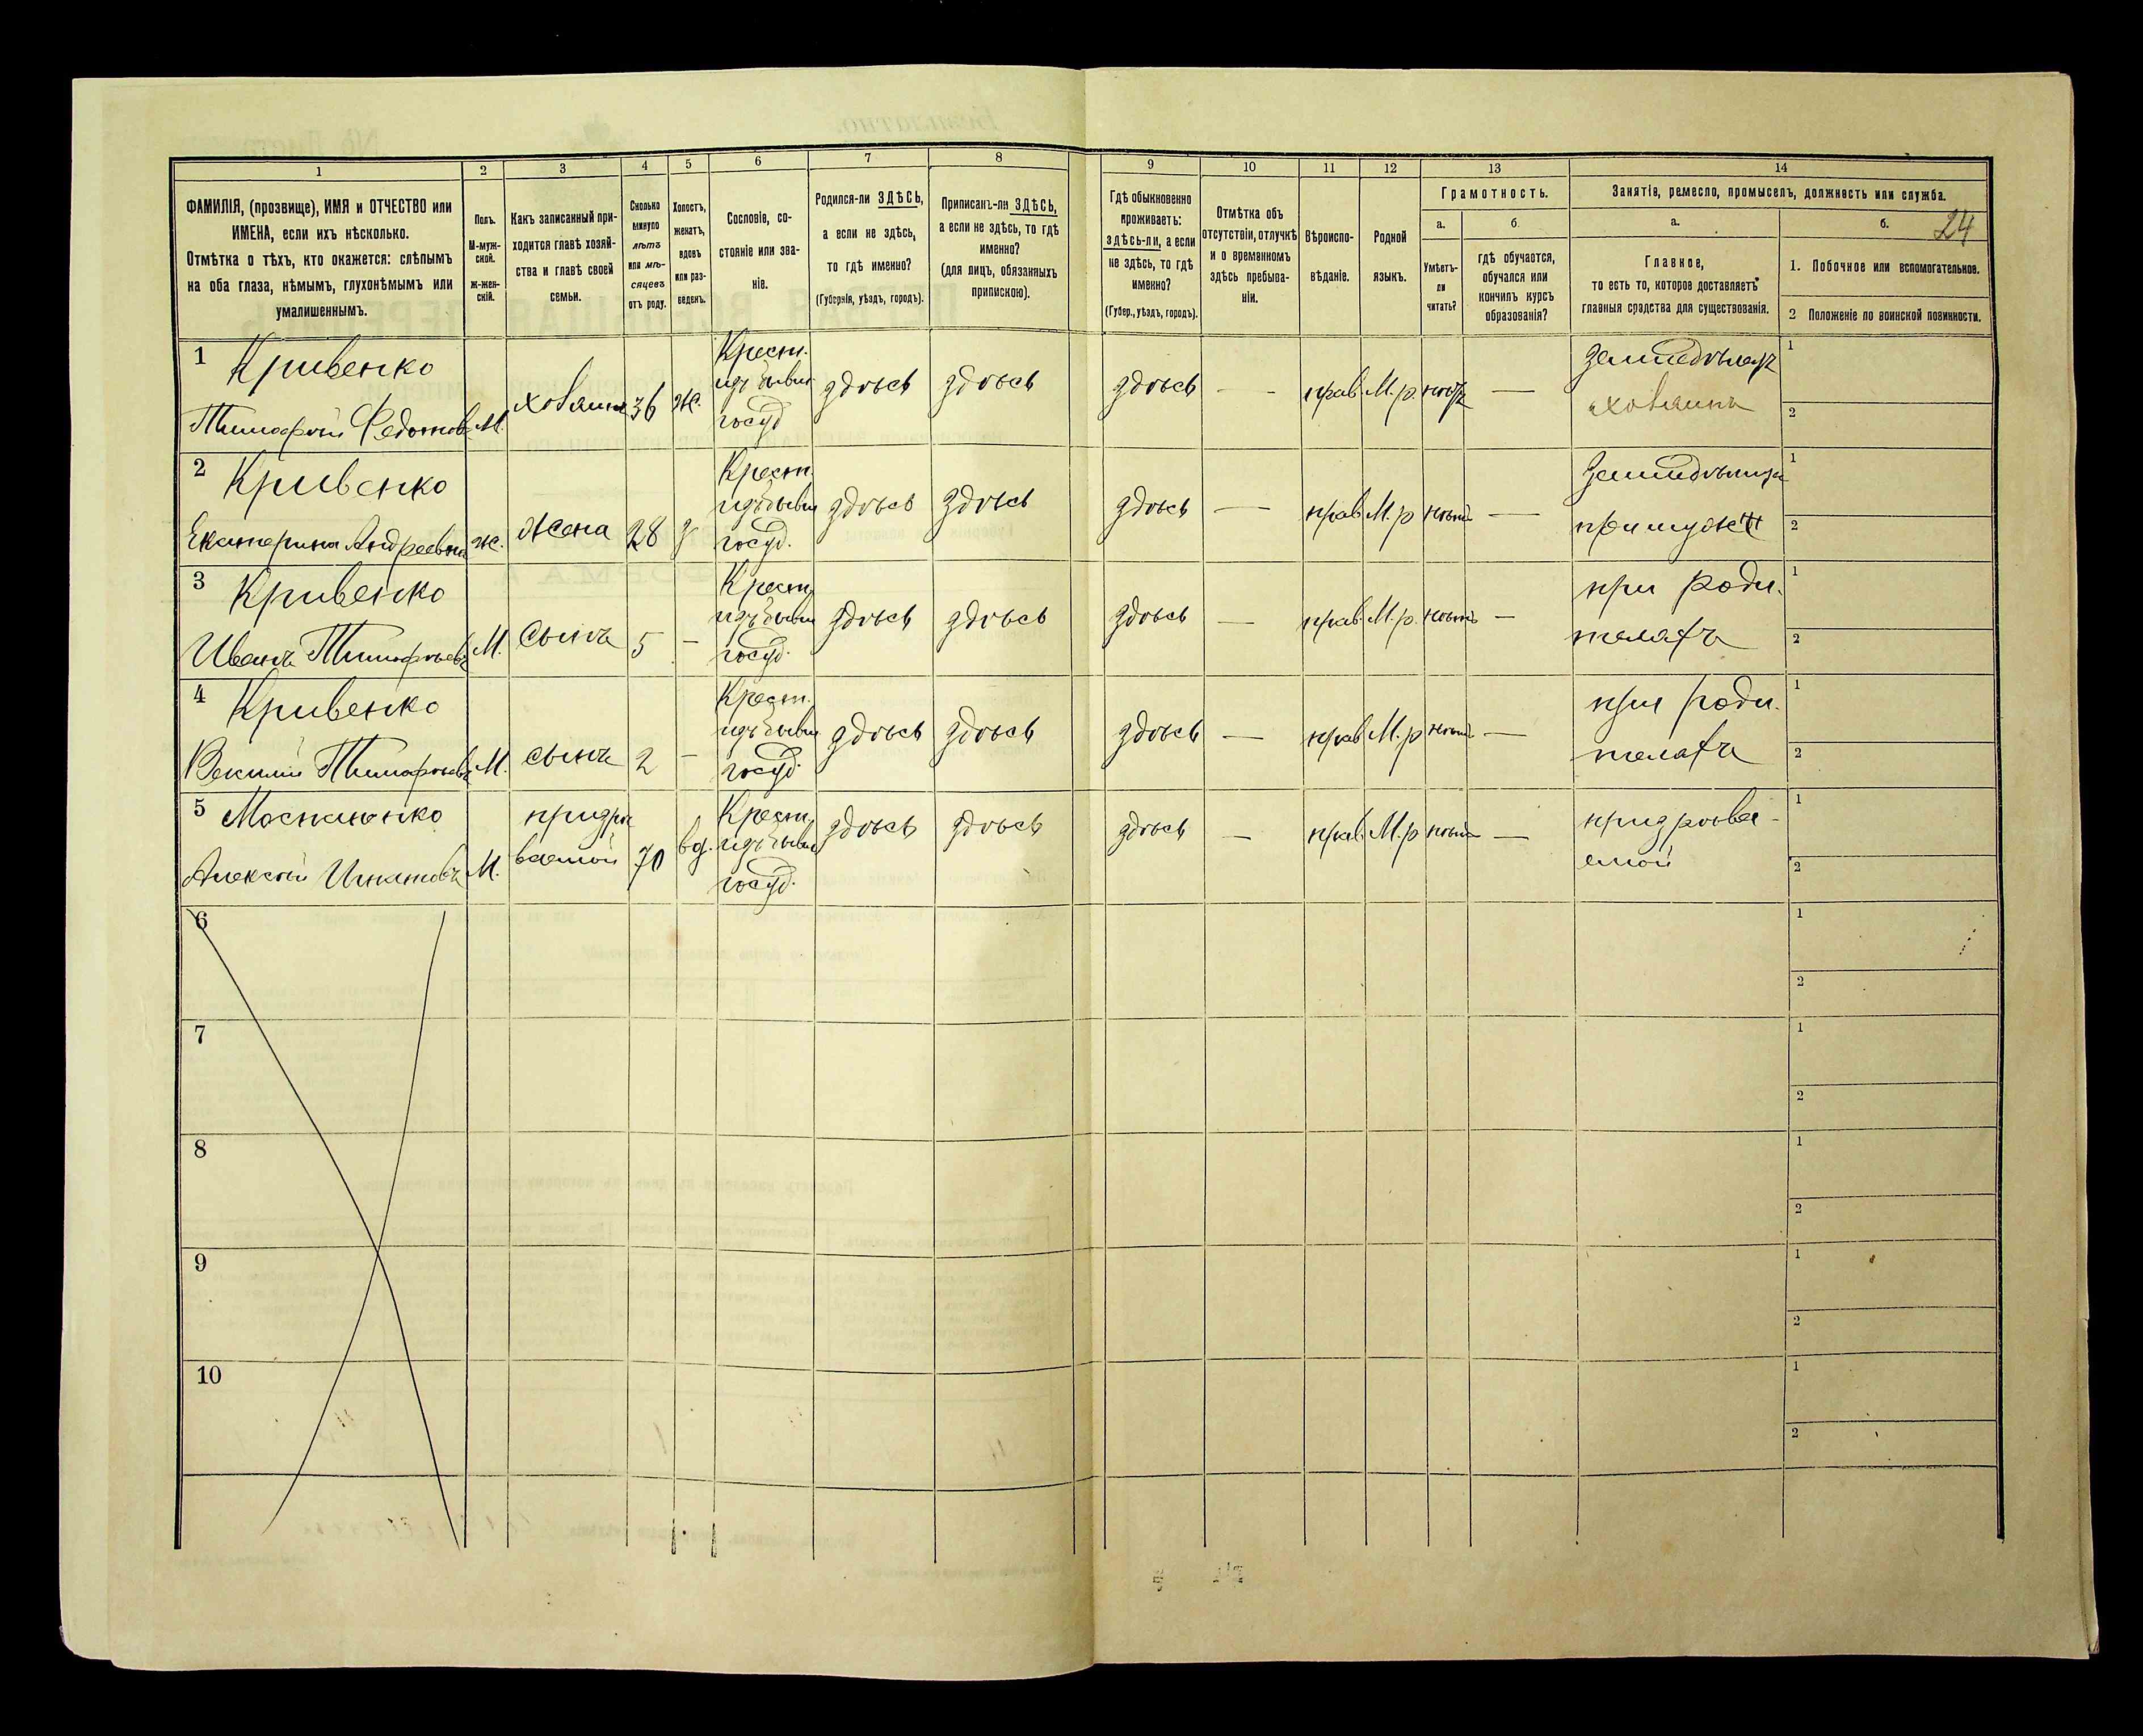 1
2
3
4
5
6
7
8
9
10
11
12
13
14
ФАМИЛІЯ, (прозвище), ИМЯ и ОТЧЕСТВО или
ИМЕНА, если ихъ нѣсколько.
Отмѣтка о тѣхъ, кто окажется: слѣпымъ
на оба глаза, нѣмымъ, глухонѣмымъ или
умалишеннымъ.
Полъ.
М-муж-
ской.
Ж-жен-
скій.
Какъ записанный при-
ходится главѣ хозяй-
ства и главѣ своей
семьи.
Сколько
минуло
лѣтъ
или мѣ-
сяцевъ
отъ роду.
Холостъ,
женатъ,
вдовъ
или раз-
веденъ.
Сословіе, со-
стояніе или зва-
ніе.
Родился-ли ЗДѢСЬ,
а если не здѣсь,
то гдѣ именно?
(Губернія, уѣздъ, городъ).
Приписанъ-ли ЗДѢСЬ,
а если не здѣсь, то гдѣ
именно?
(для лицъ, обязанныхъ
припискою).
Гдѣ обыкновенно
проживаетъ:
здѣсь-ли, а если
не здѣсь, то гдѣ
именно?
(Губер., уѣздъ, городъ).
Отмѣтка объ
отсутствіи, отлучкѣ
и о временномъ
здѣсь пребыва-
ніи.
Вѣроиспо-
вѣданіе.
Родной
языкъ.
Грамотность.
а.
Умѣетъ-
ли
читать?
б.
гдѣ обучается,
обучался или
кончилъ курсъ
образованія?
Занятіе, ремесло, промыселъ, должность или служба.
а.
Главное,
то есть то, которое доставляетъ
главныя средства для существованія.
б. 24
1. Побочное или вспомогательное.
2 Положеніе по воинской повинности.
1 Кривенко
Тимофей Федотовъ
М.
хозяинъ
36
ж.
Крест.
изъ бывш
госуд
здѣсь
здѣсь
здѣсь
—
прав.
М.р.
нѣтъ
—
земледѣлецъ
хозяинъ
1
2
2 Кривенко
Екатерина Андреевна
ж.
жена
28
з
Крест.
изъ бывш
госуд.
здѣсь
здѣсь
здѣсь
—
прав.
М.р
нѣтъ
—
при мужѣ
1
2
3 Кривенко
Иванъ Тимофеевъ
М.
сынъ
5
-
Крест.
изъ бывш
госуд.
здѣсь
здѣсь
здѣсь
—
прав.
М.р.
нѣтъ
—
при роди-
теляхъ
1
2
4 Кривенко
Тимофеевъ
М.
сынъ
2
-
Крест.
изъ бывш
госуд.
здѣсь
здѣсь
здѣсь
—
прав
М.р
нѣтъ
—
при роди-
теляхъ
1
2
5
Алексѣй Игнатовъ
М.
70
вд.
Крест.
изъ бывш
госуд.
здѣсь
здѣсь
здѣсь
—
прав.
М.р
нѣтъ
—
1
2
6
1
2
7
1
2
8
1
2
9
1
2
10
1
2